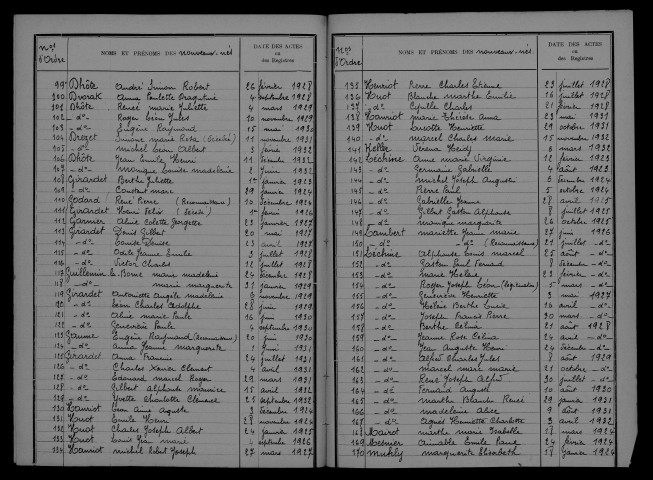 Nos d'Ordre NOMS ET PRÉNOMS DES nouveaux-nés DATE DES ACTES ou des Registres
99 Dhôte André Simon Robert 26 février 1928
100 Dvorak Anna Paulette 4 septembre 1928
101 Dhôte Renée Marie Juliette 4 mars 1929
102 -do- Roger Léon Jules 10 novembre 1929
103 -do- Eugène Raymond 15 mai 1930
104 Droget Simone Marie Rosa (Décès) 11 novembre 1931
105 -do- Michel Léon Albert 3 février 1932
106 Dhôte Jean Emile Henri 11 Décembre 1932
107 -do- Monique Louise Madeleine 2 juin 1932
108 Girardet Berthe Juliette 1er janvier 1923
109 -do- Constant Marc 29 janvier 1924
110 Godard René Pierre (Reconnaissance) 10 Décembre 1924
111 Girardet Henri Félix (Décès) 1er février 1926
112 Garnier Aline Colette Georgette 23 janvier 1927
113 Girardet Denis Gilbert 20 mai 1927
114 -do- Louise Denise 23 avril 1927
115 -do- Odile Jeanne Emilie 3 juillet 1928
116 -do- Victor Charles 12 juillet 1928
117 Guillemin Le Borne Marie Madeleine 24 Décembre 1928
118 -do- Marie Marguerite 31 janvier 1929
119 Girardet Antoinette Angèle Madeleine 3 novembre 1929
120 -do- Léon Charles Adolphe 28 juin 1929
121 -do- Aline Marie Paule 16 juin 1930
122 -do- Geneviève Paule 4 septembre 1930
123 Eugène Raymond (Reconnaissance) 20 juin 1930
124 -do- Anna Jeanne Marguerite juin 1931
125 Girardet Anna Francine 24 juillet 1931
126 -do- Charles Xavier Clément 4 avril 1931
127 -do- Edouard Marcel Roger 29 mars 1931
128 -do- Gilbert Alphonse Maurice 15 avril 1932
129 -do- Yvette Charlotte Clémence 25 septembre 1932
130 Henriot Léon Aimé Auguste 3 Décembre 1924
131 Huot Emile Henri 28 novembre 1924
132 Huot Charles Joseph Albert 24 janvier 1925
133 Huot Louis Jean Marie 1 septembre 1926
134 Henriot Michel Albert Joseph 27 mars 1927
Nos d'Ordre NOMS ET PRÉNOMS DES nouveaux-nés DATE DES ACTES ou des Registres
135 Henriot Pierre Charles Etienne 23 juillet 1928
136 Huot Blanche Marthe Emilie 26 juillet 1928
137 -do- Cyrille Charles 21 février 1928
138 Henriot Marie Thérèse Anna 23 mai 1931
139 Huot Lucette Henriette 29 octobre 1931
140 -do- Marcel Charles Marie 15 novembre 1932
141 Keller Verena Heidy 6 mars 1932
142 Léchine Anne Marie Virginie 12 février 1923
143 -do- Germaine Gabrielle 4 août 1923
144 -do- Michel Joseph Augustin 6 Décembre 1924
145 -do- Pierre Paul 5 octobre 1924
146 -do- Gabrielle Jeanne 28 avril 1925
147 -do- Gilbert Gaston Alphonse 8 juillet 1925
148 -do- Monique Marguerite 26 octobre 1925
149 Lambert Mariette Jeanne Marie 27 juin 1926
150 -do- -do- (Reconnaissance) 21 juillet -do-
151 Léchine Alphonse Louis Marcel 25 août -do-
152 -do- Gaston Paul Fernand 8 Décembre -do-
153 -do- Marie Hélène 23 février -do-
154 -do- Roger Joseph Léon (Légitimation) 5 mars -do-
155 -do- Geneviève Henriette 3 mai 1927
156 -do- Hélène Berthe Lucie 16 août -do-
157 -do- Joseph Francis Pierre 30 mars -do-
158 -do- Berthe Céline 21 août 1928
159 -do- Jeanne Rose Célina 24 avril -do-
160 -do- Jean Auguste Henri 24 Décembre -do-
161 -do- Alfred Charles Jules 8 août 1929
162 -do- Marcel Marc Marie 21 octobre -do-
163 -do- René Joseph Alfred 30 juillet -do-
164 -do- Fernand Auguste 10 août 1930
165 -do- Marthe Blanche Renée 29 janvier 1931
166 -do- Madeleine Alice 9 août 1931
167 -do- Agnès Henriette Charlotte 3 avril 1932
168 Mairot Marthe Marie Isabelle 28 mars 1924
169 Meunier Aimable Emile Pierre 24 février 1924
170 Muhly Marguerite Elisabeth 28 janvier 1924